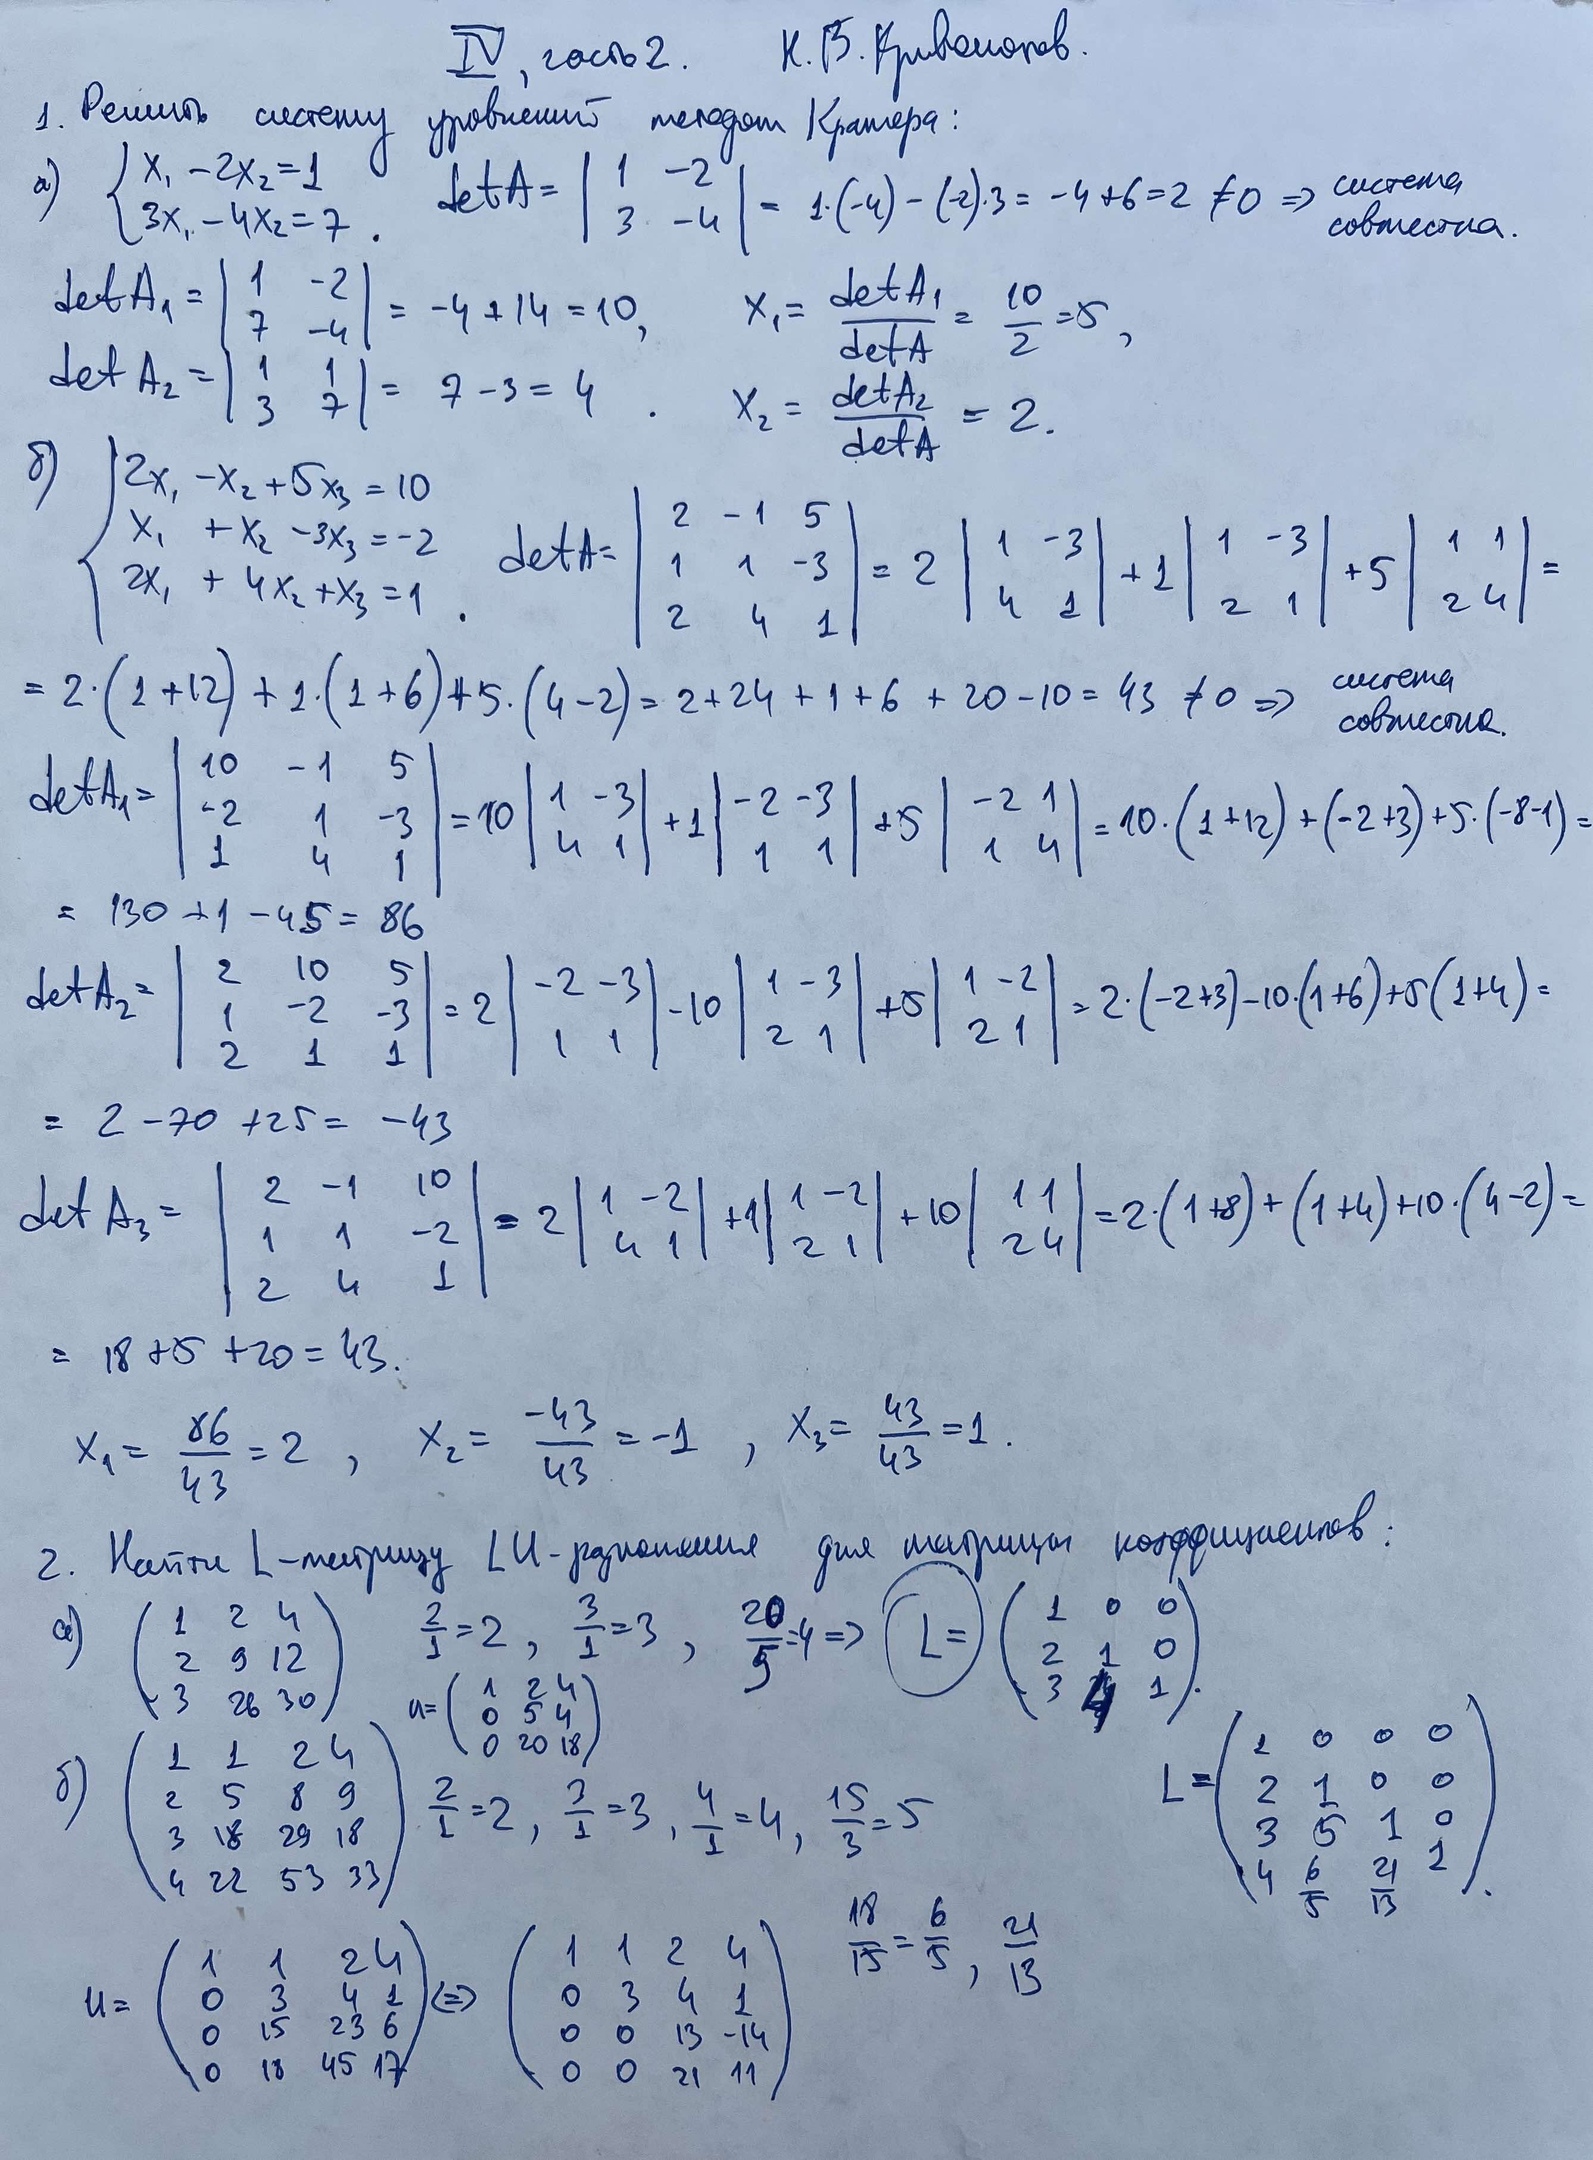 IV, часть 2. К.В.Кривоногов.
1. Решить систему уравнений методом Крамера:
а) { x₁ - 2x₂ = 1
3x₁ - 4x₂ = 7 . detA = | 1 -2
3 -4 | = 1·(-4) - (-2)·3 = -4+6 = 2 ≠ 0 => система
совместна.
detA₁ = | 1 -2
7 -4 | = -4+14 = 10, x₁ = detA₁/detA = 10/2 = 5,
detA₂ = | 1 1
3 7 | = 7-3 = 4 . x₂ = detA₂/detA = 2.
б) { 2x₁ - x₂ + 5x₃ = 10
x₁ + x₂ - 3x₃ = -2
2x₁ + 4x₂ + x₃ = 1 .
detA = | 2 -1 5
1 1 -3
2 4 1 | = 2 | 1 -3
4 1 | + 1 | 1 -3
2 1 | + 5 | 1 1
2 4 | =
= 2·(1+12) + 1·(1+6) + 5·(4-2) = 2+24+1+6+20-10 = 43 ≠ 0 => система
совместна.
detA₁ = | 10 -1 5
-2 1 -3
1 4 1 | = 10 | 1 -3
4 1 | + 1 | -2 -3
1 1 | + 5 | -2 1
1 4 | = 10·(1+12) + (-2+3) + 5·(-8-1) =
= 130 + 1 - 45 = 86
detA₂ = | 2 10 5
1 -2 -3
2 1 1 | = 2 | -2 -3
1 1 | - 10 | 1 -3
2 1 | + 5 | 1 -2
2 1 | = 2·(-2+3) - 10·(1+6) + 5(1+4) =
= 2 - 70 + 25 = -43
detA₃ = | 2 -1 10
1 1 -2
2 4 1 | = 2 | 1 -2
4 1 | + 1 | 1 -2
2 1 | + 10 | 1 1
2 4 | = 2·(1+8) + (1+4) + 10·(4-2) =
= 18 + 5 + 20 = 43.
x₁ = 86/43 = 2 , x₂ = -43/43 = -1 , x₃ = 43/43 = 1 .
2. Найти L-матрицу LU-разложения для матрицы коэффициентов:
а) ( 1 2 4
2 9 12
3 26 30 )
2/1 = 2, 3/1 = 3, 20/5 = 4 => L = ( 1 0 0
2 1 0
3 4 1 ).
u = ( 1 2 4
0 5 4
0 20 18 )
б) ( 1 1 2 4
2 5 8 9
3 18 29 18
4 22 53 33 )
2/1 = 2, 3/1 = 3, 4/1 = 4, 15/3 = 5
L = ( 1 0 0 0
2 1 0 0
3 5 1 0
4 6/5 21/13 1 ).
u = ( 1 1 2 4
0 3 4 1
0 15 23 6
0 18 45 17 ) <=> ( 1 1 2 4
0 3 4 1
0 0 13 -14
0 0 21 11 )
18/15 = 6/5, 21/13